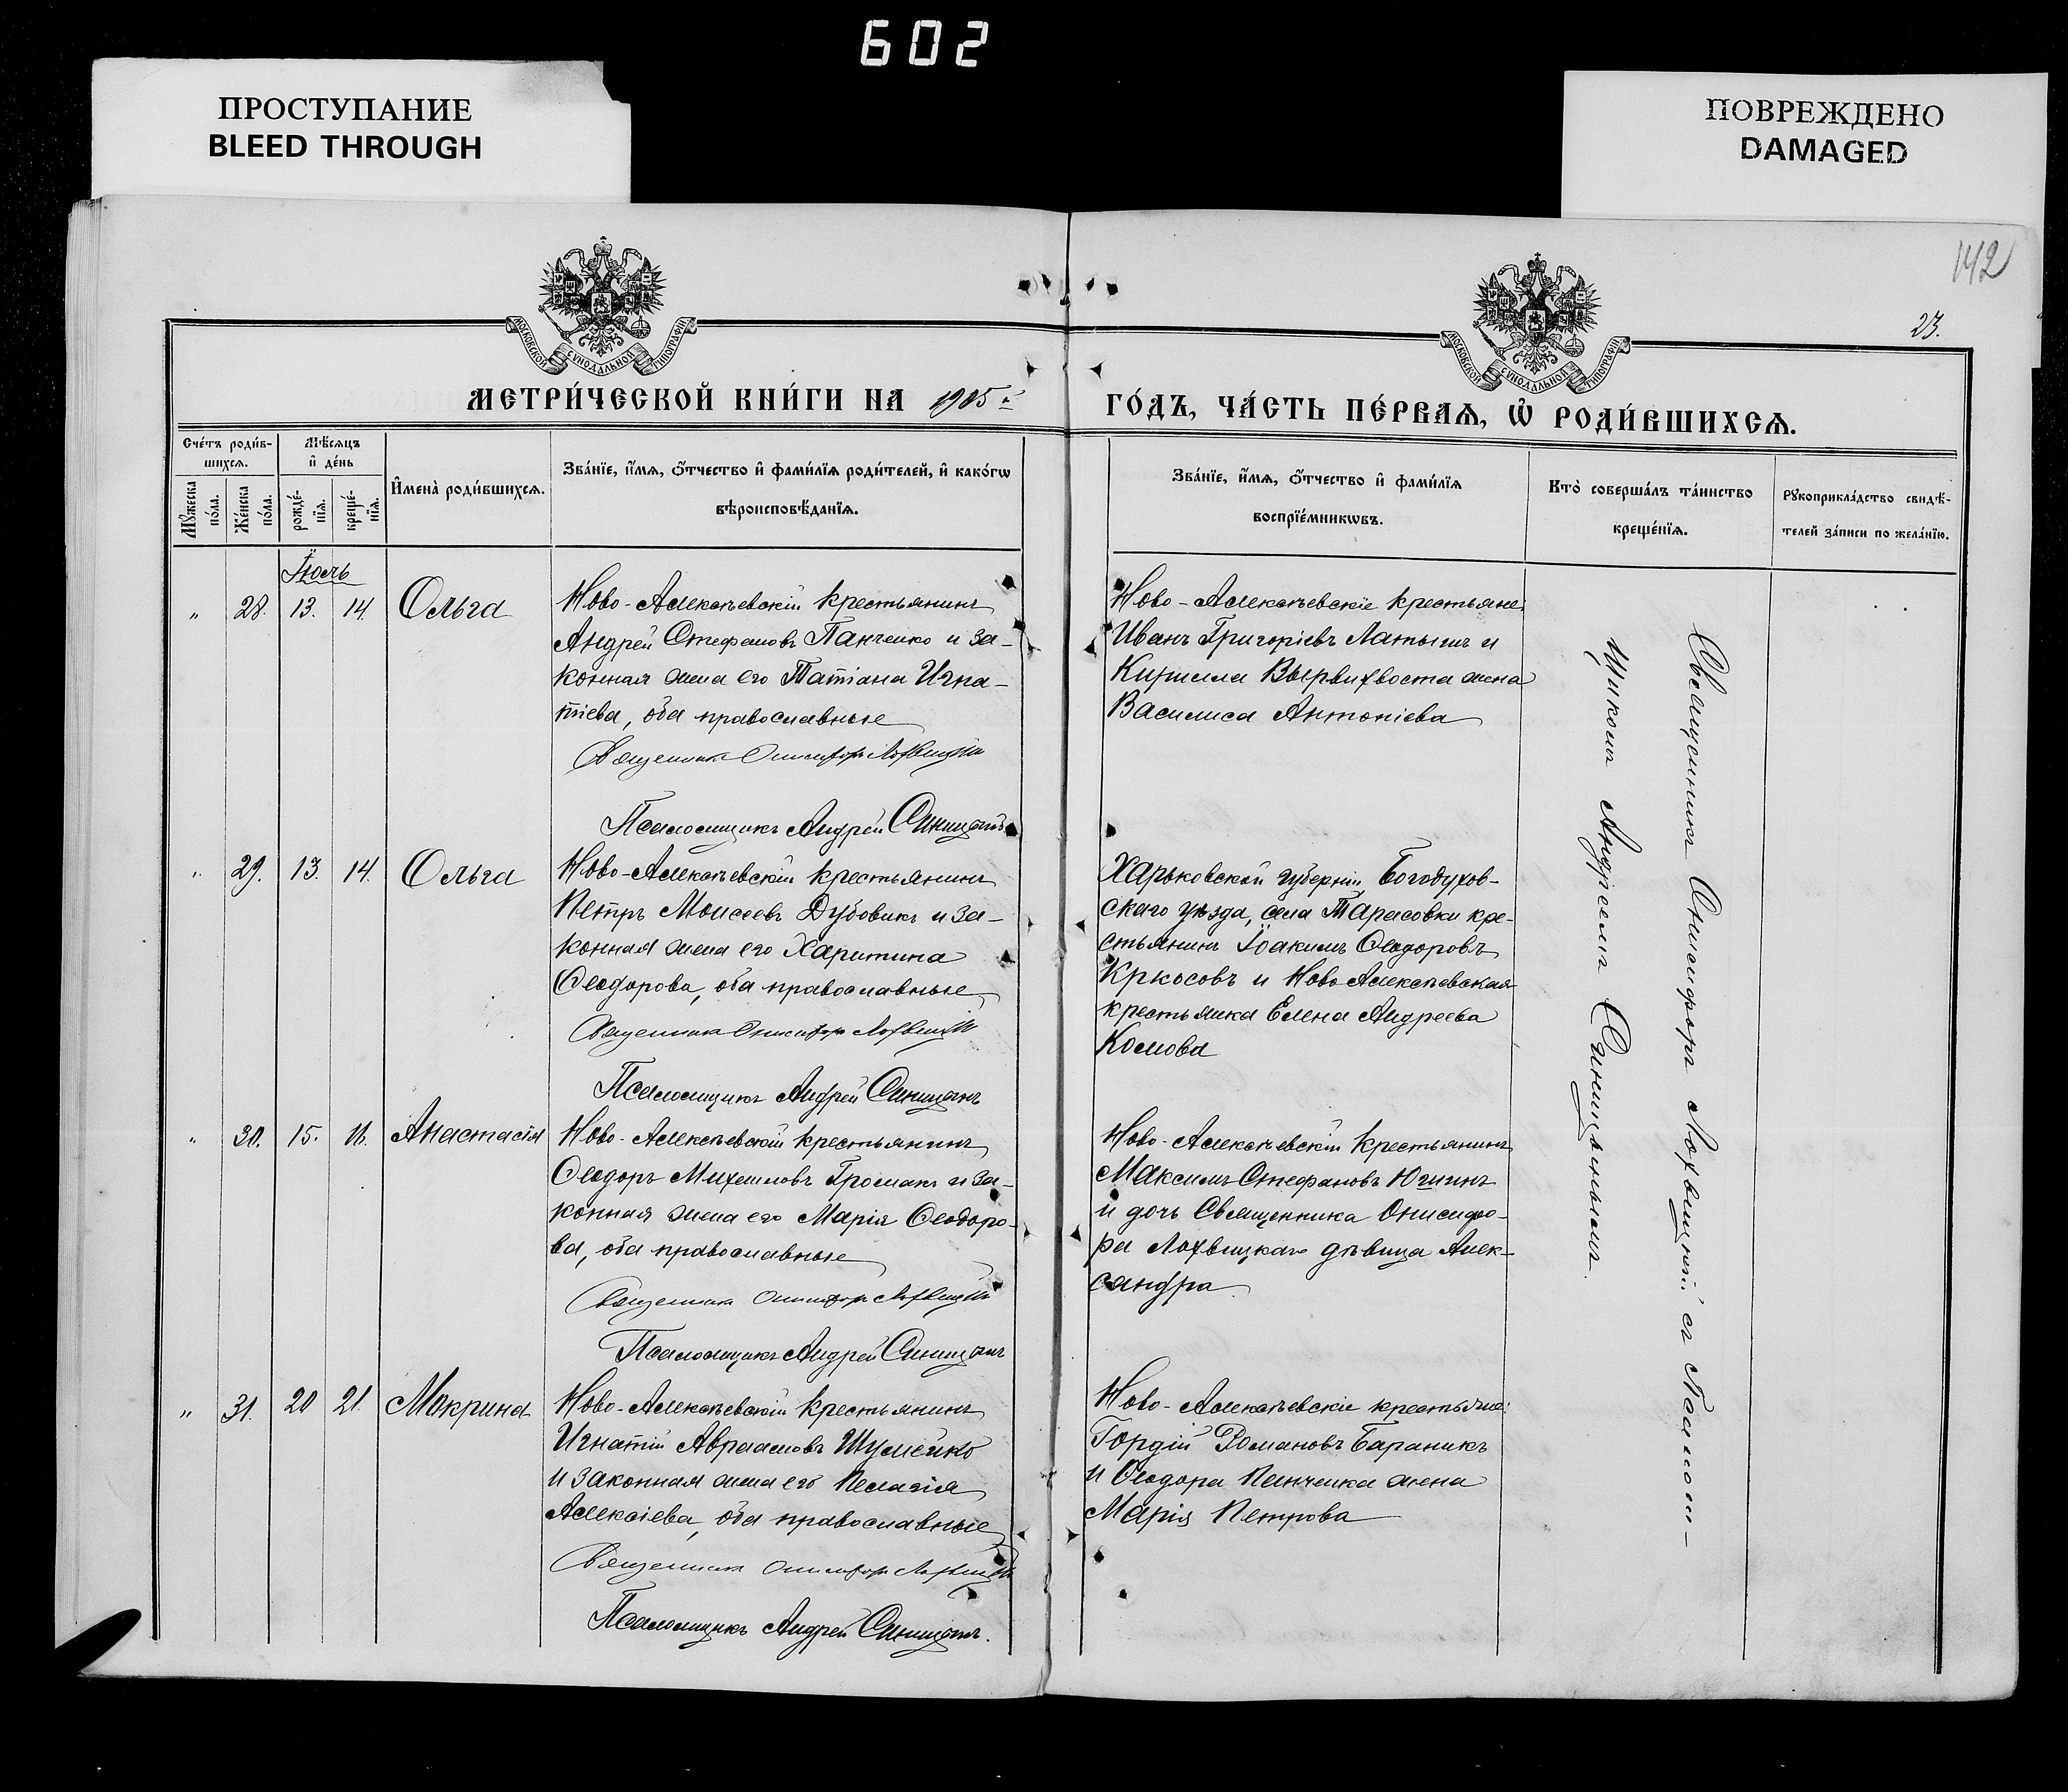 602
ПРОСТУПАНИЕ
BLEED THROUGH
ПОВРЕЖДЕНО
DAMAGED
142
23.
МОСКОВСКОЙ СѴНОДАЛЬНОЙ ТИПОГРАФІИ
МОСКОВСКОЙ СѴНОДАЛЬНОЙ ТИПОГРАФІИ
МЕТРИ́ЧЕСКОЙ КНИ́ГИ НА 1905 й
ГО́ДЪ, ЧА́СТЬ ПЕ́РВАѦ, Ѡ҆ РОДИ́ВШИХСѦ.
Сче́тъ роди́в-
шихсѧ.
Мѣ́сѧцъ
и҆ де́нь
Мꙋ́жеска
по́ла.
Же́нска
по́ла.
рожде́-
нїѧ.
креще́-
нїѧ.
И҆мена̀ роди́вшихсѧ.
Зва́нїе, и҆́мѧ, ѻ҆́тчество и҆ фами́лїѧ роди́телей, и҆ како́гѡ
вѣроисповѣ́данїѧ.
Зва́нїе, и҆́мѧ, ѻ҆́тчество и҆ фами́лїѧ
воспрїе́мникѡвъ.
Кто̀ соверша́лъ та́инство
креще́нїѧ.
Рꙋкоприкла́дство свидѣ́-
телей за́писи по жела́нїю.
Іюль
" 28. 13. 14. Ольга
Ново-Алексѣевскій крестьянинъ
Андрей Стефановъ Панченко и за-
конная жена его Татіана Игна-
тіева, оба православные
Священникъ Онисифоръ Лохвицкій
Псаломщикъ Андрей Синицынъ
Ново-Алексѣевскіе крестьяне:
Иванъ Григоріевъ Латышъ и
Кирилла Вырвихвоста жена
Василиса Антоніева
" 29. 13. 14. Ольга
Ново-Алексѣевскій крестьянинъ
Петръ Моисеевъ Дубовикъ и за-
конная жена его Харитина
Ѳеодорова, оба православные
Священникъ Онисифоръ Лохвицкій
Псаломщикъ Андрей Синицынъ
Харьковской губерніи, Богодухов-
скаго уѣзда, села Тарасовки кре-
стьянинъ Іоакимъ Ѳеодоровъ
и Ново-Алексѣевская
крестьянка Елена Андреева
Комова
" 30. 15. 16. Анастасія
Ново-Алексѣевскій крестьянинъ
Ѳеодоръ Михаиловъ Громакъ и за-
конная жена его Марія Ѳеодоро-
ва, оба православные
Священникъ Онисифоръ Лохвицкій
Псаломщикъ Андрей Синицынъ
Ново-Алексѣевскій крестьянинъ
Максимъ Стефановъ
и дочь Священника Онисифо-
ра Лохвицкаго дѣвица Алек-
сандра
" 31. 20 21. Макрина
Ново-Алексѣевскій крестьянинъ
Игнатій Авраамовъ Шумейко
и законная жена его Пелагія
Алексіева, оба православные
Священникъ Онисифоръ Лохвицкій
Псаломщикъ Андрей Синицынъ.
Ново-Алексѣевскіе крестьяне:
Гордій Романовъ Бараникъ
и Ѳеодора Панченка жена
Марія Петрова
Священникъ Онисифоръ Лохвицкій съ Псалом-
щикомъ Андреемъ Синицынымъ.